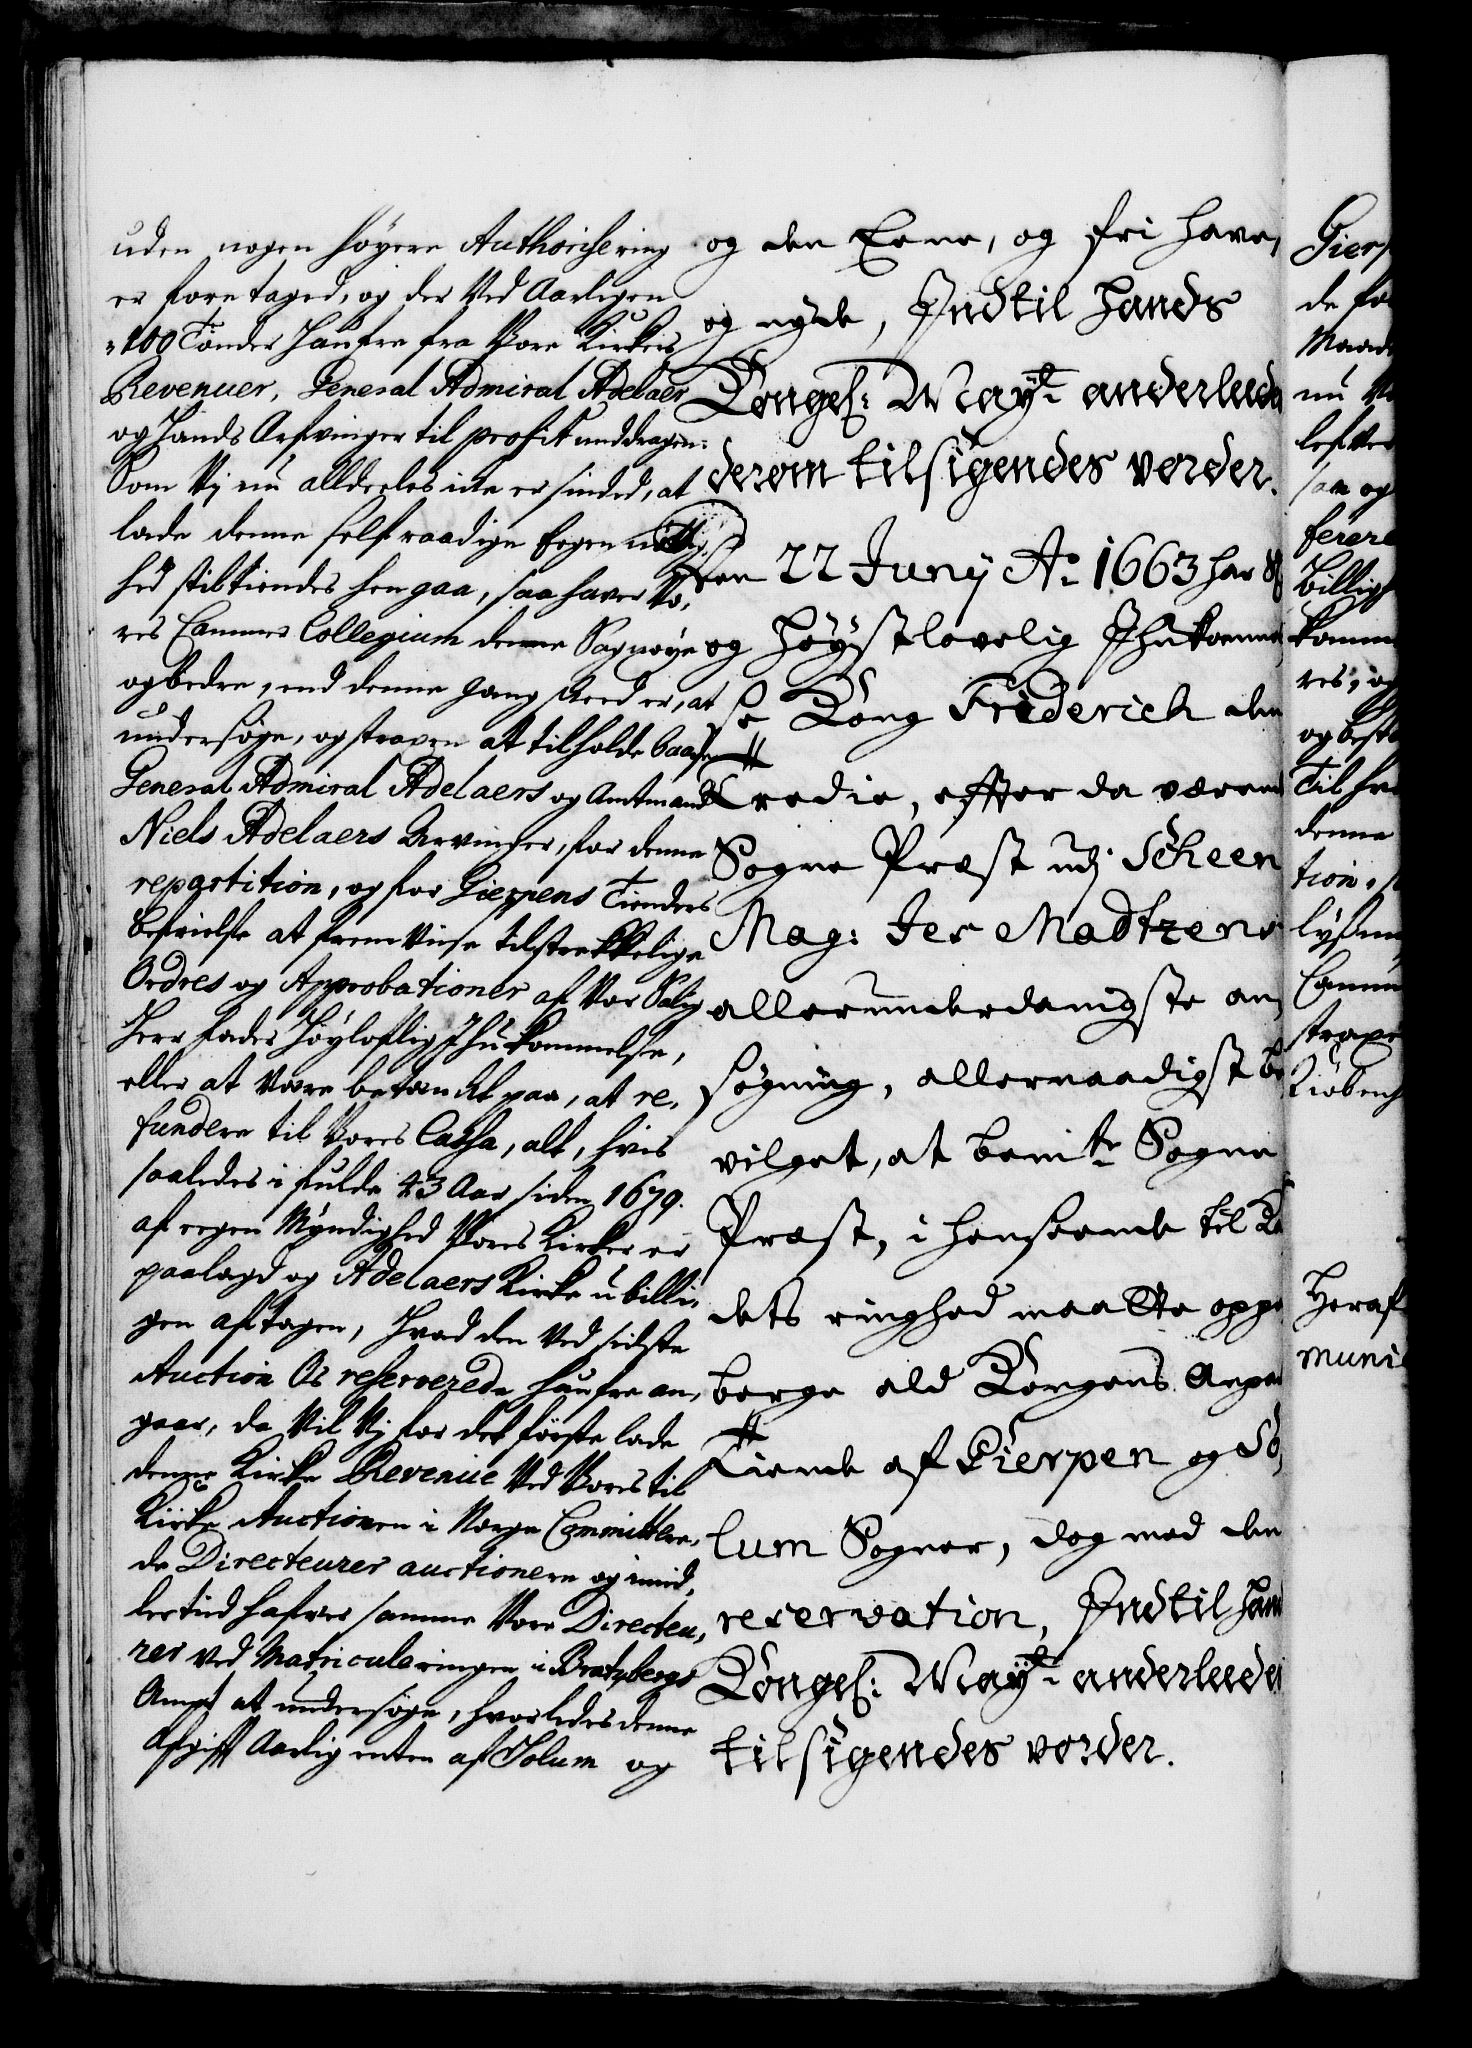 uden nogen höyere Authorisering
er foretaged, og der Ved Aarligen
100 Tönder Haufre fra Vore Kirkers
Revenuer, General Admiral Adelaer
og Hands Arfvinger til profit unddragen:
Som Vj nu alldeeles icke er sinded, at
lade denne self raadige Egennöttig,
hed stiltiendes hengaa, saa haver Vo,
res Cammer Collegium denne Sag nöye
og bedre, end denne gang skeed er, at
undersöge, og straxen at tilholde baade
General Admiral Adelaers og Amtmand
Niels Adelaers Arvinger, for denne
repartition, og for Gierpens Tienders
befrielse at fremviise tilstrekkelige
Ordres og Approbationer af Vor Salig
Herr Fader Höyloflig Ihukommelse,
eller at være betænckt paa, at re,
fundere til Vores Cassa, alt, hvis
saaledes i fulde 43 Aar siden 1679.
af egen Myndighed Vores Kirker er
paalagd og Adelaers Kirke ubilli,
gen aftagen, Hvad den Ved sidste
Auction Os reserverede haufre an,
gaar, da Vil Vj for det förste lade
denne Kirke Revenüe Ved Vores til
Kirke Auctionen i Norge Committere,
de Directeurer auctionere og imid,
lertiid hafver samme Vore Directeu,
rer Ved Matriculeringen i Bratzbergs
Ampt at undersöge, hvorledes denne
Afgifft Aarlig enten af Solum og
og den Eene, og frj have,
og nyde, Indtil Hands
Kongel: Mayt. anderleede
derom tilsigendes vorder.
Den 22 Junÿ Ao. 1663 har
og Höystlovelig Ihukomme
se Kong Friderich den
Tredie, effter da værend
Sogne Præst udj Scheen
Mag: Jes Madtzens
allerunderdanigste an,
søgning, allernaadigst be
vilget, at bemte. Sogne
Præst, i henseende til
dets ringhed maatte oppe
berge ald Kongens Anpa
Tiende af Gierpen og So,
lum Sogner, dog med den
reservation, Indtil Han
Kongel: Mayt. anderleedes
tilsigendes vorder.
Gierp
de for
Maad
nu
lefver
saa og
ferere
Billigh
komm
res, og
og best
Til
denne
tion,
lysen
Camm
straxe
Kiöbenh
Heraf
muni